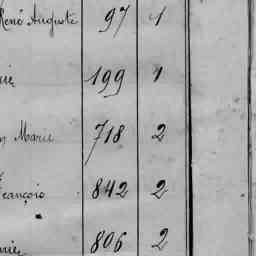 René Auguste 97 1
199 1
Marie 718 2
François 842 2
806 2